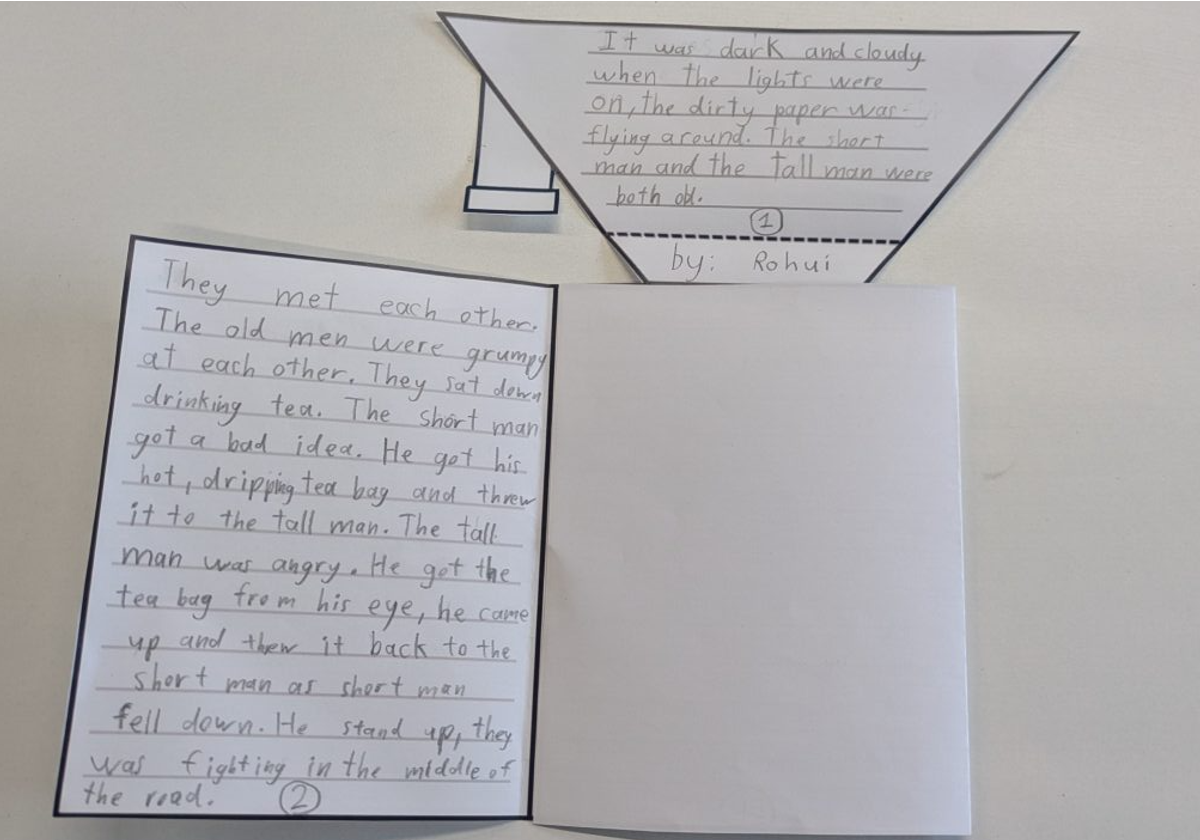 It was dark and cloudy
when the lights were
on, the dirty paper was
flying around. The short
man and the tall man were
both old.
1
by: Rohui
They met each other.
The old men were grumpy
at each other. They sat down
drinking tea. The short man
got a bad idea. He got his
hot, dripping tea bag and threw
it to the tall man. The tall
man was angry. He got the
tea bag from his eye, he came
up and thew it back to the
short man as short man
fell down. He stand up, they
was fighting in the middle of
the road. 2